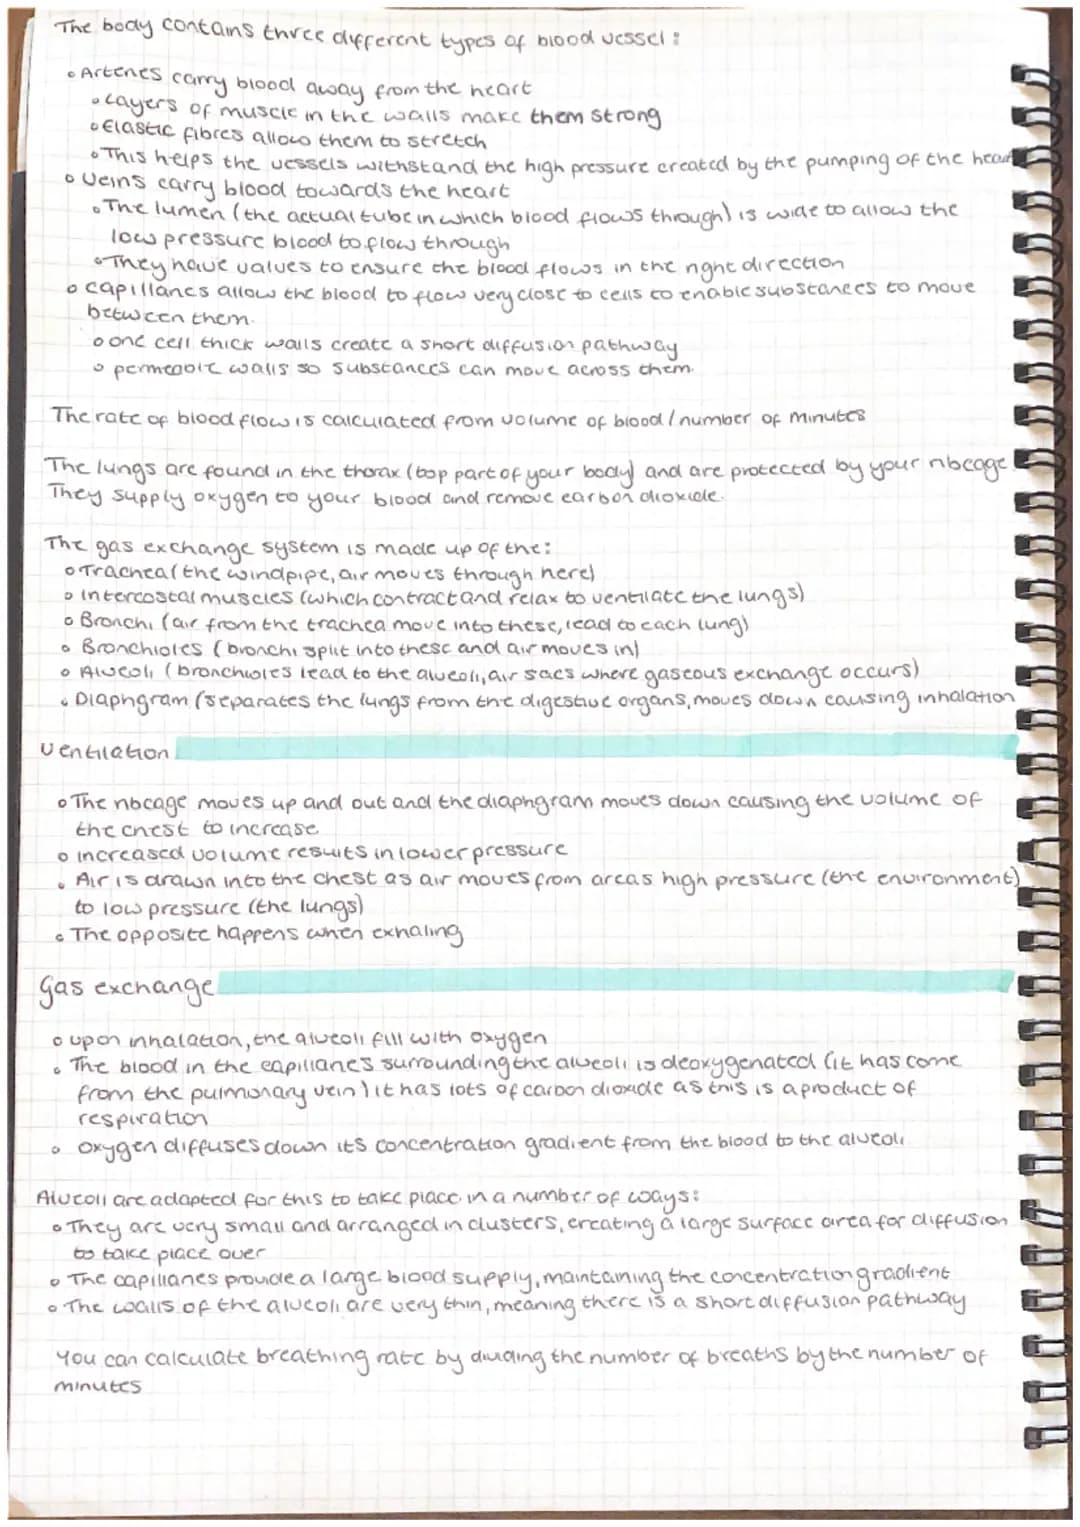 The body contains three different types of blood vessel:
• Arteries carry blood away from the heart
• Layers of muscle in the walls make them strong
• Elastic fibres allow them to stretch
• This helps the vessels withstand the high pressure created by the pumping of the heart
• Veins carry blood towards the heart
• The lumen (the actual tube in which blood flows through) is wide to allow the
low pressure blood to flow through
• They have valves to ensure the blood flows in the right direction
• capillaries allow the blood to flow very close to cells to enable substances to move
between them.
• one cell thick walls create a short diffusion pathway
• permeable walls so substances can move across them.
The rate of blood flow is calculated from volume of blood / number of minutes
The lungs are found in the thorax (top part of your body) and are protected by your ribcage
They supply oxygen to your blood and remove carbon dioxide.
The gas exchange system is made up of the:
• Trachea (the windpipe, air moves through here)
• Intercostal muscles (which contract and relax to ventilate the lungs)
• Bronchi (air from the trachea move into these, lead to each lung)
• Bronchioles (bronchi split into these and air moves in)
• Alveoli (bronchioles lead to the alveoli, air sacs where gaseous exchange occurs)
• Diaphgram (separates the lungs from the digestive organs, moves down causing inhalation
Ventilation
• The ribcage moves up and out and the diaphgram moves down causing the volume of
the chest to increase
• increased volume results in lower pressure
• Air is drawn into the chest as air moves from areas high pressure (the environment)
to low pressure (the lungs)
• The opposite happens when exhaling
Gas exchange
• upon inhalation, the alveoli fill with oxygen
• The blood in the capillaries surrounding the alveoli is deoxygenated (it has come
from the pulmonary vein) it has lots of carbon dioxide as this is a product of
respiration
• oxygen diffuses down its concentration gradient from the blood to the alveoli
Alveoli are adapted for this to take place in a number of ways:
• They are very small and arranged in clusters, creating a large surface area for diffusion
to take place over
• The capillaries provide a large blood supply, maintaining the concentration gradient
• The walls of the alveoli are very thin, meaning there is a short diffusion pathway
You can calculate breathing rate by dividing the number of breaths by the number of
minutes